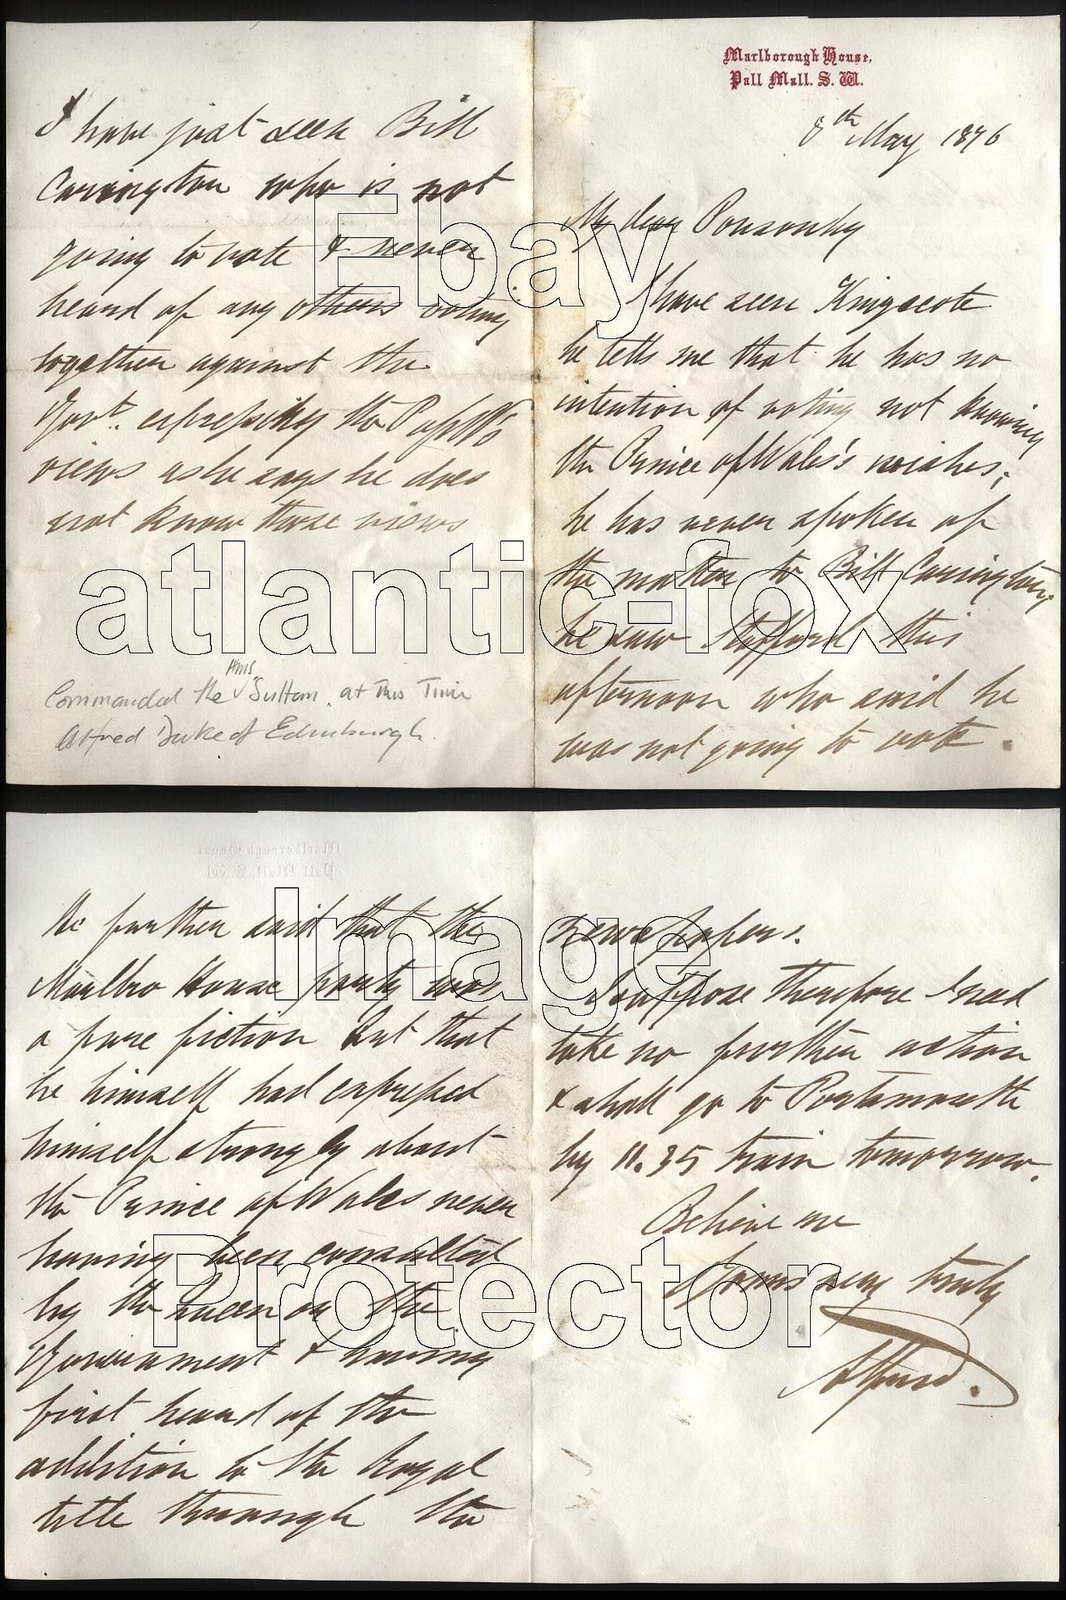 Marlborough House,
Pall Mall. S. W.
8th May 1876
My dear Ponsonby
I have seen Kingscote
he tells me that he has no
intention of voting not knowing
the Prince of Wales's wishes,
he has never spoken of
the matter to Bill Carrington,
he saw Stafford this
afternoon who said he
was not going to vote.
He further said that the
Marlbro House party was
a pure fiction but that
he himself had expressed
himself strongly about
the Prince of Wales never
having been consulted
by the Queen or the
Government & having
first heard of the
addition to the Royal
title through the
newspapers.
I suppose therefore I need
take no further action
& shall go to Portsmouth
by 11.35 train tomorrow.
Believe me
Yours very truly
Alfred.
I have just seen Bill
Carington who is not
going to vote & never
heard of any others voting
together against the
Govt. expressing the P of W's
views as he says he does
not know those views
Commanded the HMS "Sultan. at this Time
Alfred Duke of Edinburgh.
Ebay
atlantic-fox
Image
Protector